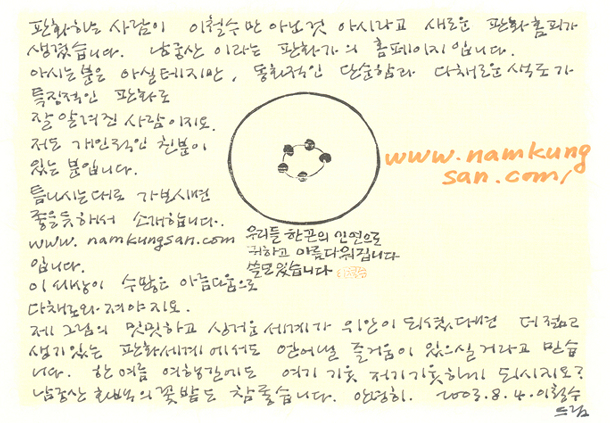 판화하는 사람이 이철수만 아닌것 아시라고 새로운 판화홈피가
생겼습니다. 남궁산 이라는 판화가의 홈페이지입니다.
아시는분은 아실테지만, 동화적인 단순함과 다채로운색조가
특징적인 판화로
잘알려진 사람이지요.
저도 개인적인 친분이
있는 분입니다.
틈나시는대로 가보시면
좋을듯해서 소개합니다.
www.namkungsan.com
입니다.
이세상이 수많은 아름다움으로
다채로와져야지요.
www.namkung
san.com/
우리들 한끈의 인연으로
귀하고 아름다워집니다
쓸모있습니다
제 그림의 밋밋하고 싱거운세계가 위안이 되셨다면 더젊고
생기있는 판화세계에서도 얻어낼 즐거움이 있으실거라고 믿습
니다. 한여름 여행길에도 여기기웃 저기기웃하게 되시지요?
남궁산 화백의꽃밭도 참좋습니다. 안녕히. 2003.8.4.이철수
드림